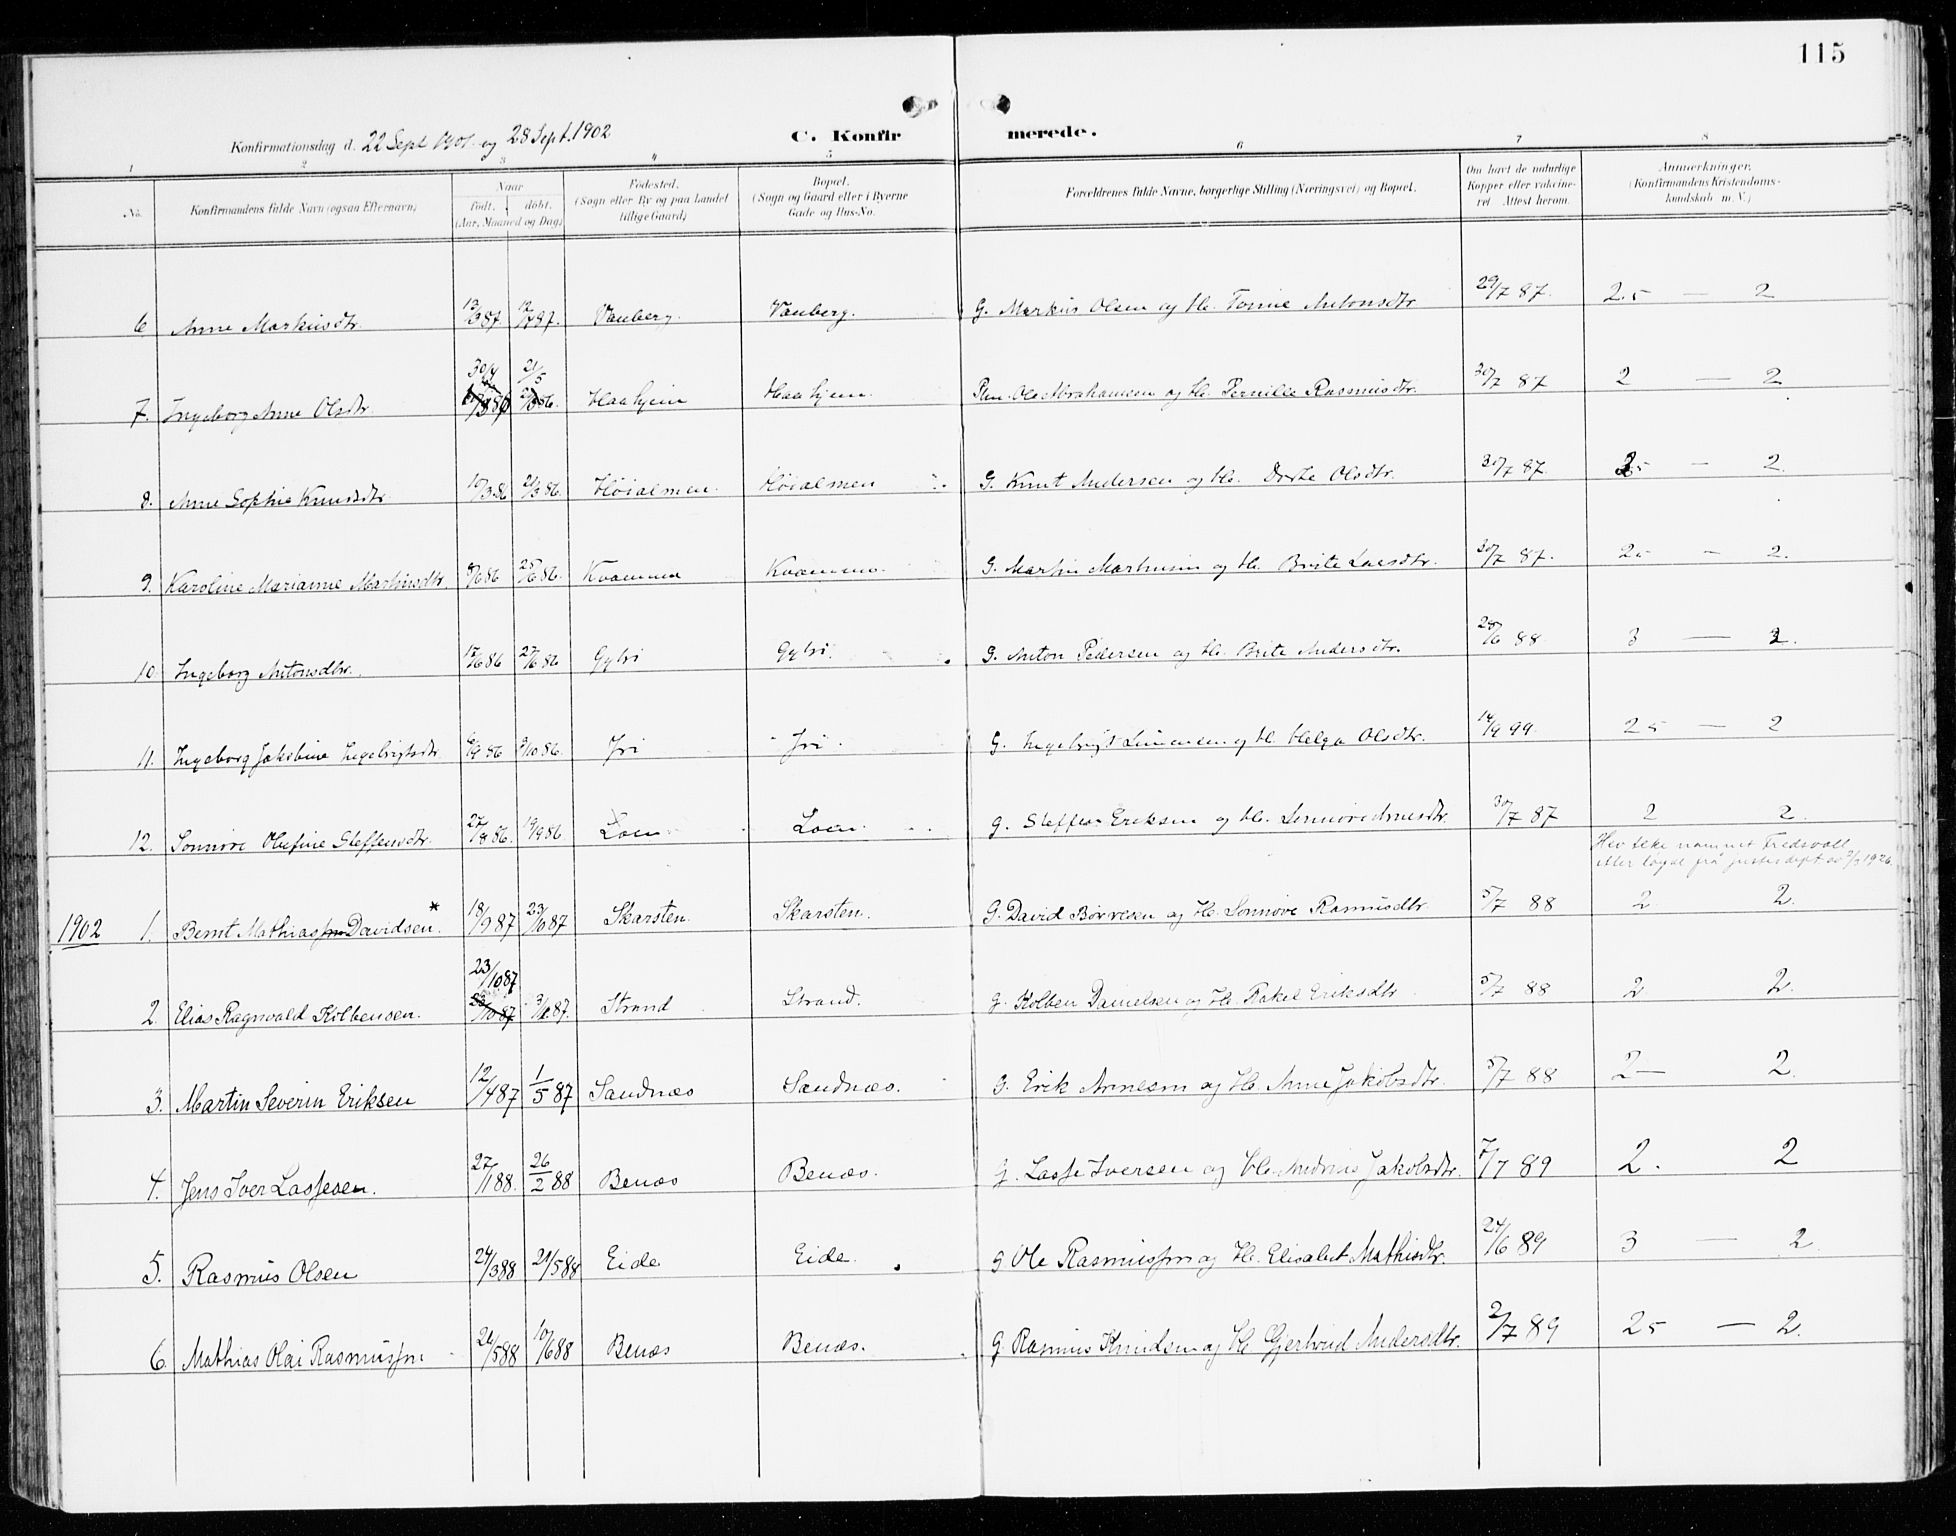 115
Konfirmationsdag d. 22 Sept 1901 og 28 Sept. 1902 C. Konfir merede.
1 2 3 4 5 6 7 8
No. Konfirmandens fulde Navn (ogsaa Efternavn) Naar Født. døbt. (Aar, Maaned og Dag) Fødested. (Sogn eller By og paa Landet tillige Gaard) Bopæl. (Sogn og Gaard eller i Byerne Gade og Hus-No. Forældrenes fulde Navne, borgerlige Stilling (Næringsvei) og Bopæl. Om havt de naturlige Kopper eller vakcineret. Attest herom. Anmerkninger. (Konfirmandens Kristendomskundskab m. V.)
6 Anne Markusdtr. 13/3 87 Vanberg. Vanberg. G. Markus Olsen og H. Tomine Antonsdtr. 29/7 87. 2.5 — 2
30/4 21/5
7. Ingeborg Anne Olsdtr Haahjem Haahjem. Ole Abrahamsen og H. Pernille Rasmusdtr. 30/7 87 2 — 2
8. Anne Sophie Knudsdtr 10/3 86 21/3 86. Høialmen. Høialmen G. Knut Andersen og H. Dorte Olsdtr. 30/7 87. 25 — 2.
9. Karoline Marianne Martinsdtr. 8/6 86 25/6 86. Kvamme Kvamme. G. Martin Martinsen og H. Brite Larsdtr. 30/7 87. 25 — 2.
10 Ingeborg Antonsdtr. 12/6 86 27/6 86 Gylvi Gylvi. G. Anton Pedersen og H. Brite Andersdtr. 28/6 88 3 — 2.
11. Ingeborg Jakobine Ingebrigtsdtr. 6/9 86 3/10 86. Jri Jri. G. Ingebrigt Simonsen og H. Helga Olsdtr. 14/9 99. 25 — 2
12. Sønnøve Olufine Steffensdtr. 27/8 86. 19/9 86 Loen Loen. G. Steffen Eriksen og H. Sønnøve Arnesdtr. 30/7 87 2 2.
Hev teke namnet Fredsvoll
etter løyve frå justisdept av 3/3 1926.
1902 1. Bernt Mathias Davidsen.* 18/9 87 23/10 87 Skarsten. Skarsten. G. David Børresen og H. Sønnøve Rasmusdtr. 5/7 88 2 2.
23/10 87
2. Elias Ragnvald Kolbensen. 23/10 87 3/ 87. Strand Strand. G. Kolben Danielsen og H. Rakel Eriksdtr 5/7 88 2 2.
3. Martin Severin Eriksen 12/4 87 1/5 87 Sandnæs Sandnæs. G. Erik Arnesen og H. Anne Jakobsdtr. 5/7 88 2 — 2.
4. Jens Iver Lassesen. 27/1 88. 26/2 88 Benæs Benæs. G. Lasse Iversen og H. Jakobsdtr. 7/7 89 2. 2
5. Rasmus Olsen 24/3 88 21/5 88 Eide Eide. G. Ole Rasmussen og H. Elisabet Mathisdtr. 24/6 89 3 — 2
6. Mathias Olai Rasmussen 21/5 88 10/6 88 Benæs Benæs. G. Rasmus Knudsen og H. Gjertrud Andersdtr. 2/7 89 25 — 2.